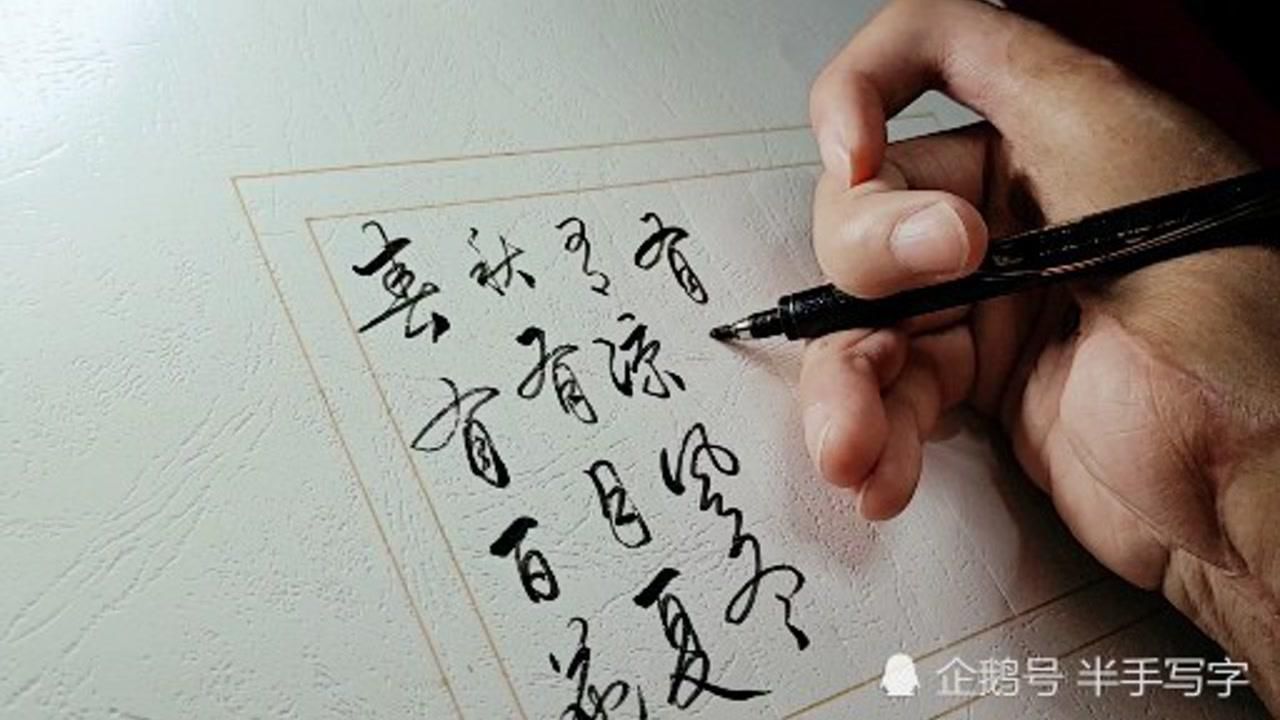 春有百花
秋有月夏
有凉风冬
有
企鹅号 半手写字